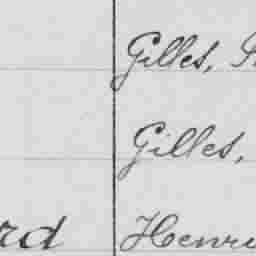 Gilles,
Gilles,
rd Henri